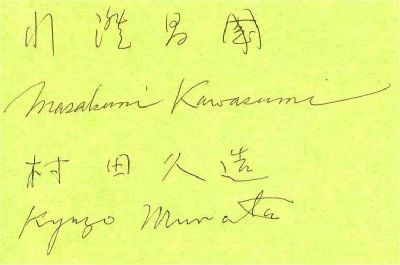 川澄昌國
Masakuni Kawasumi
村田久造
Kyuzo Murata